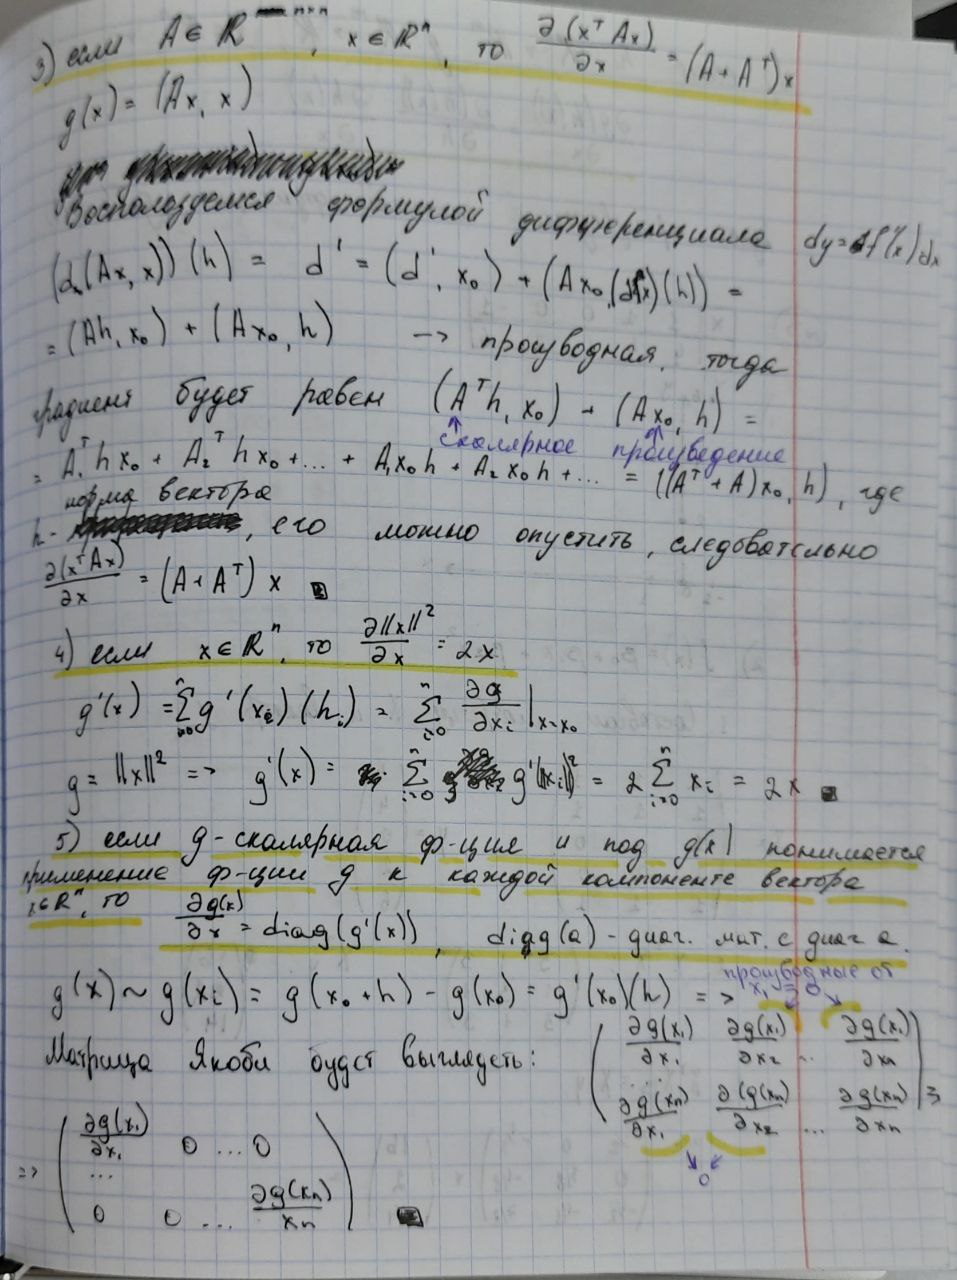 3) если A ∈ ℝ^{n×n}, x ∈ ℝ^n, то ∂(x^T Ax)/∂x = (A + A^T)x
g(x) = (Ax, x)
Воспользуемся формулой дифференциала dy = f'(x)dx
(d(Ax, x))(h) = d' = (d', x₀) + (Ax₀, (dx)(h)) =
= (Ah, x₀) + (Ax₀, h) → производная, тогда
градиент будет равен (A^T h, x₀) + (Ax₀, h) =
скалярное произведение
= A₁^T h x₀ + A₂^T h x₀ + ... + A₁x₀h + A₂x₀h + ... = ((A^T + A)x₀, h), где
норма вектора
h - , его можно опустить, следовательно
∂(x^T Ax)/∂x = (A + A^T) x ■
4) если x ∈ ℝ^n, то ∂||x||²/∂x = 2x
g'(x) = Σ_{i=0}^n g'(x_i)(h_i) = Σ_{i=0}^n ∂g/∂x_i |_{x=x₀}
g = ||x||² => g'(x) = Σ_{i=0}^n g'(||x_i||)² = 2 Σ_{i=0}^n x_i = 2x ■
5) если g-скалярная ф-ция и под g(x) понимается
применение ф-ции g к каждой компоненте вектора
x∈ℝ^n, то ∂g(x)/∂x = diag(g'(x)), digg(a) - диаг. мат. с диаг a.
производные от
g(x) ~ g(x_i) = g(x₀+h) - g(x₀) = g'(x₀)(h) =>
Матрица Якоби будет выглядеть:
( ∂g(x₁)/∂x₁ ∂g(x₁)/∂x₂ ... ∂g(x₁)/∂xn
...
∂g(xn)/∂x₁ ∂(g(xn)/∂x₂ ... ∂g(xn)/∂xn )
0
=> ( ∂g(x₁)/∂x₁ 0 ... 0
...
0 0 ... ∂g(xn)/xn ) ■